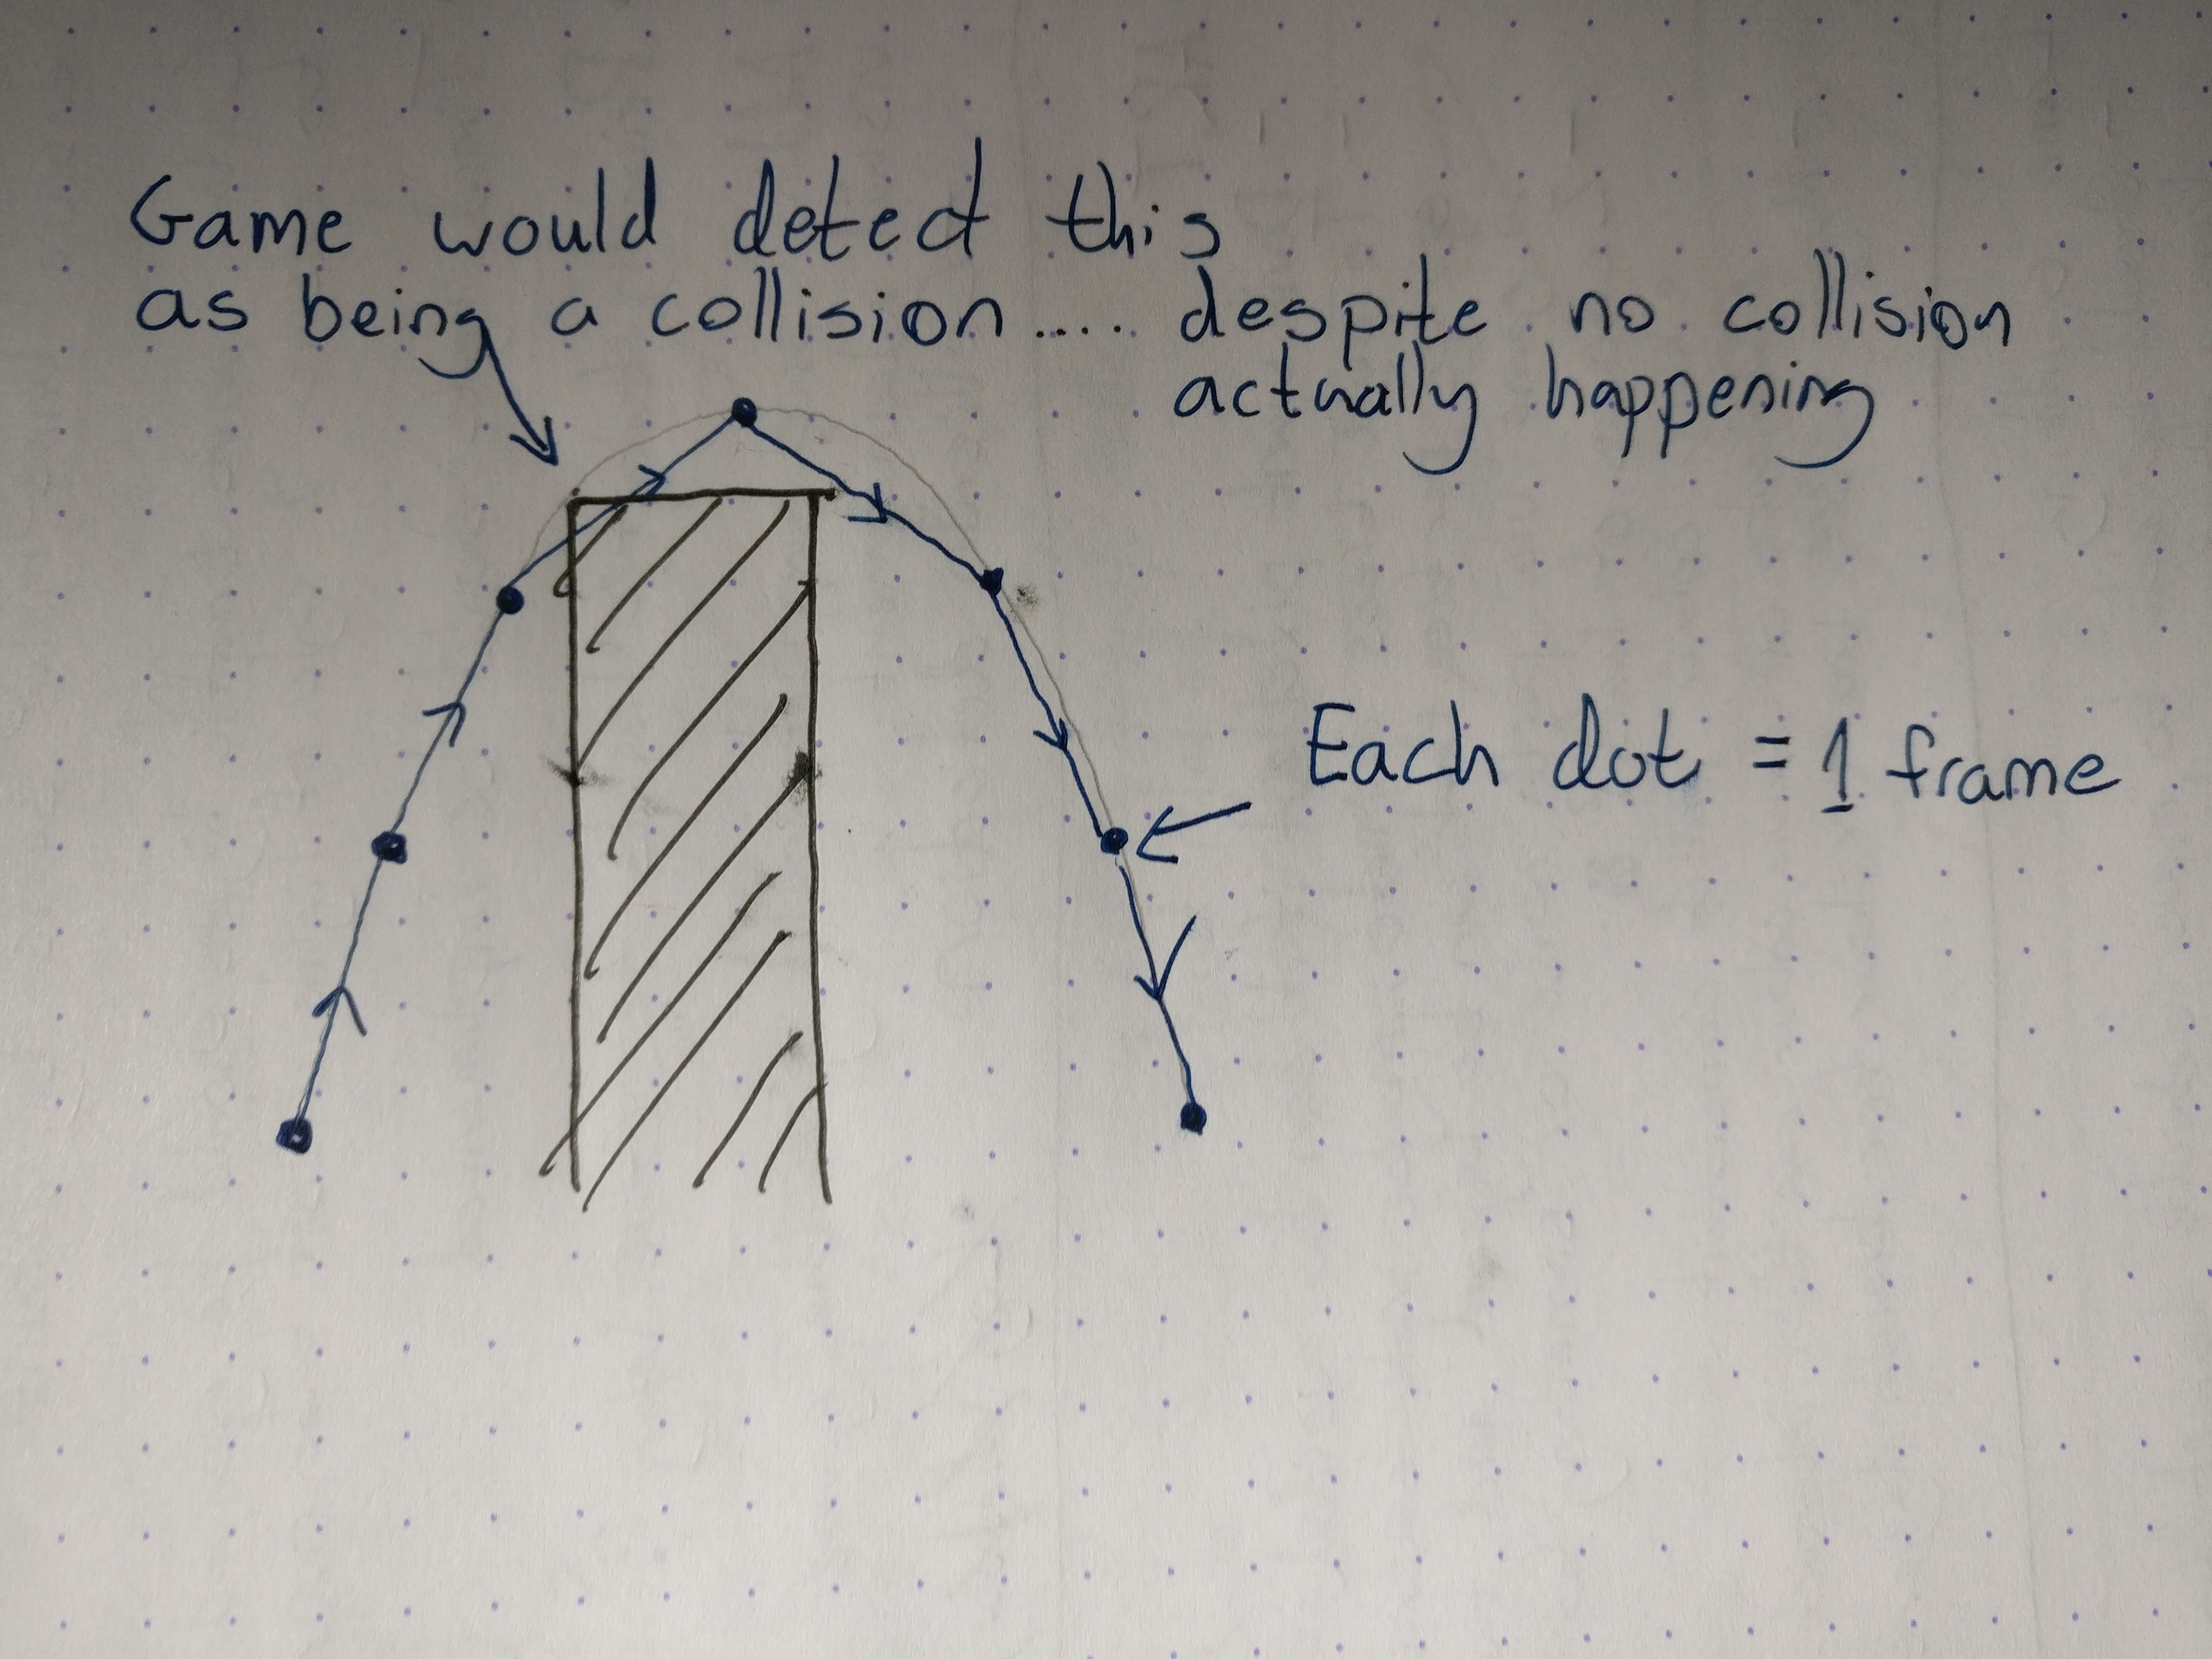 Game would detect this
as being a collision.... despite no collision
actually happening
Each dot = 1 frame